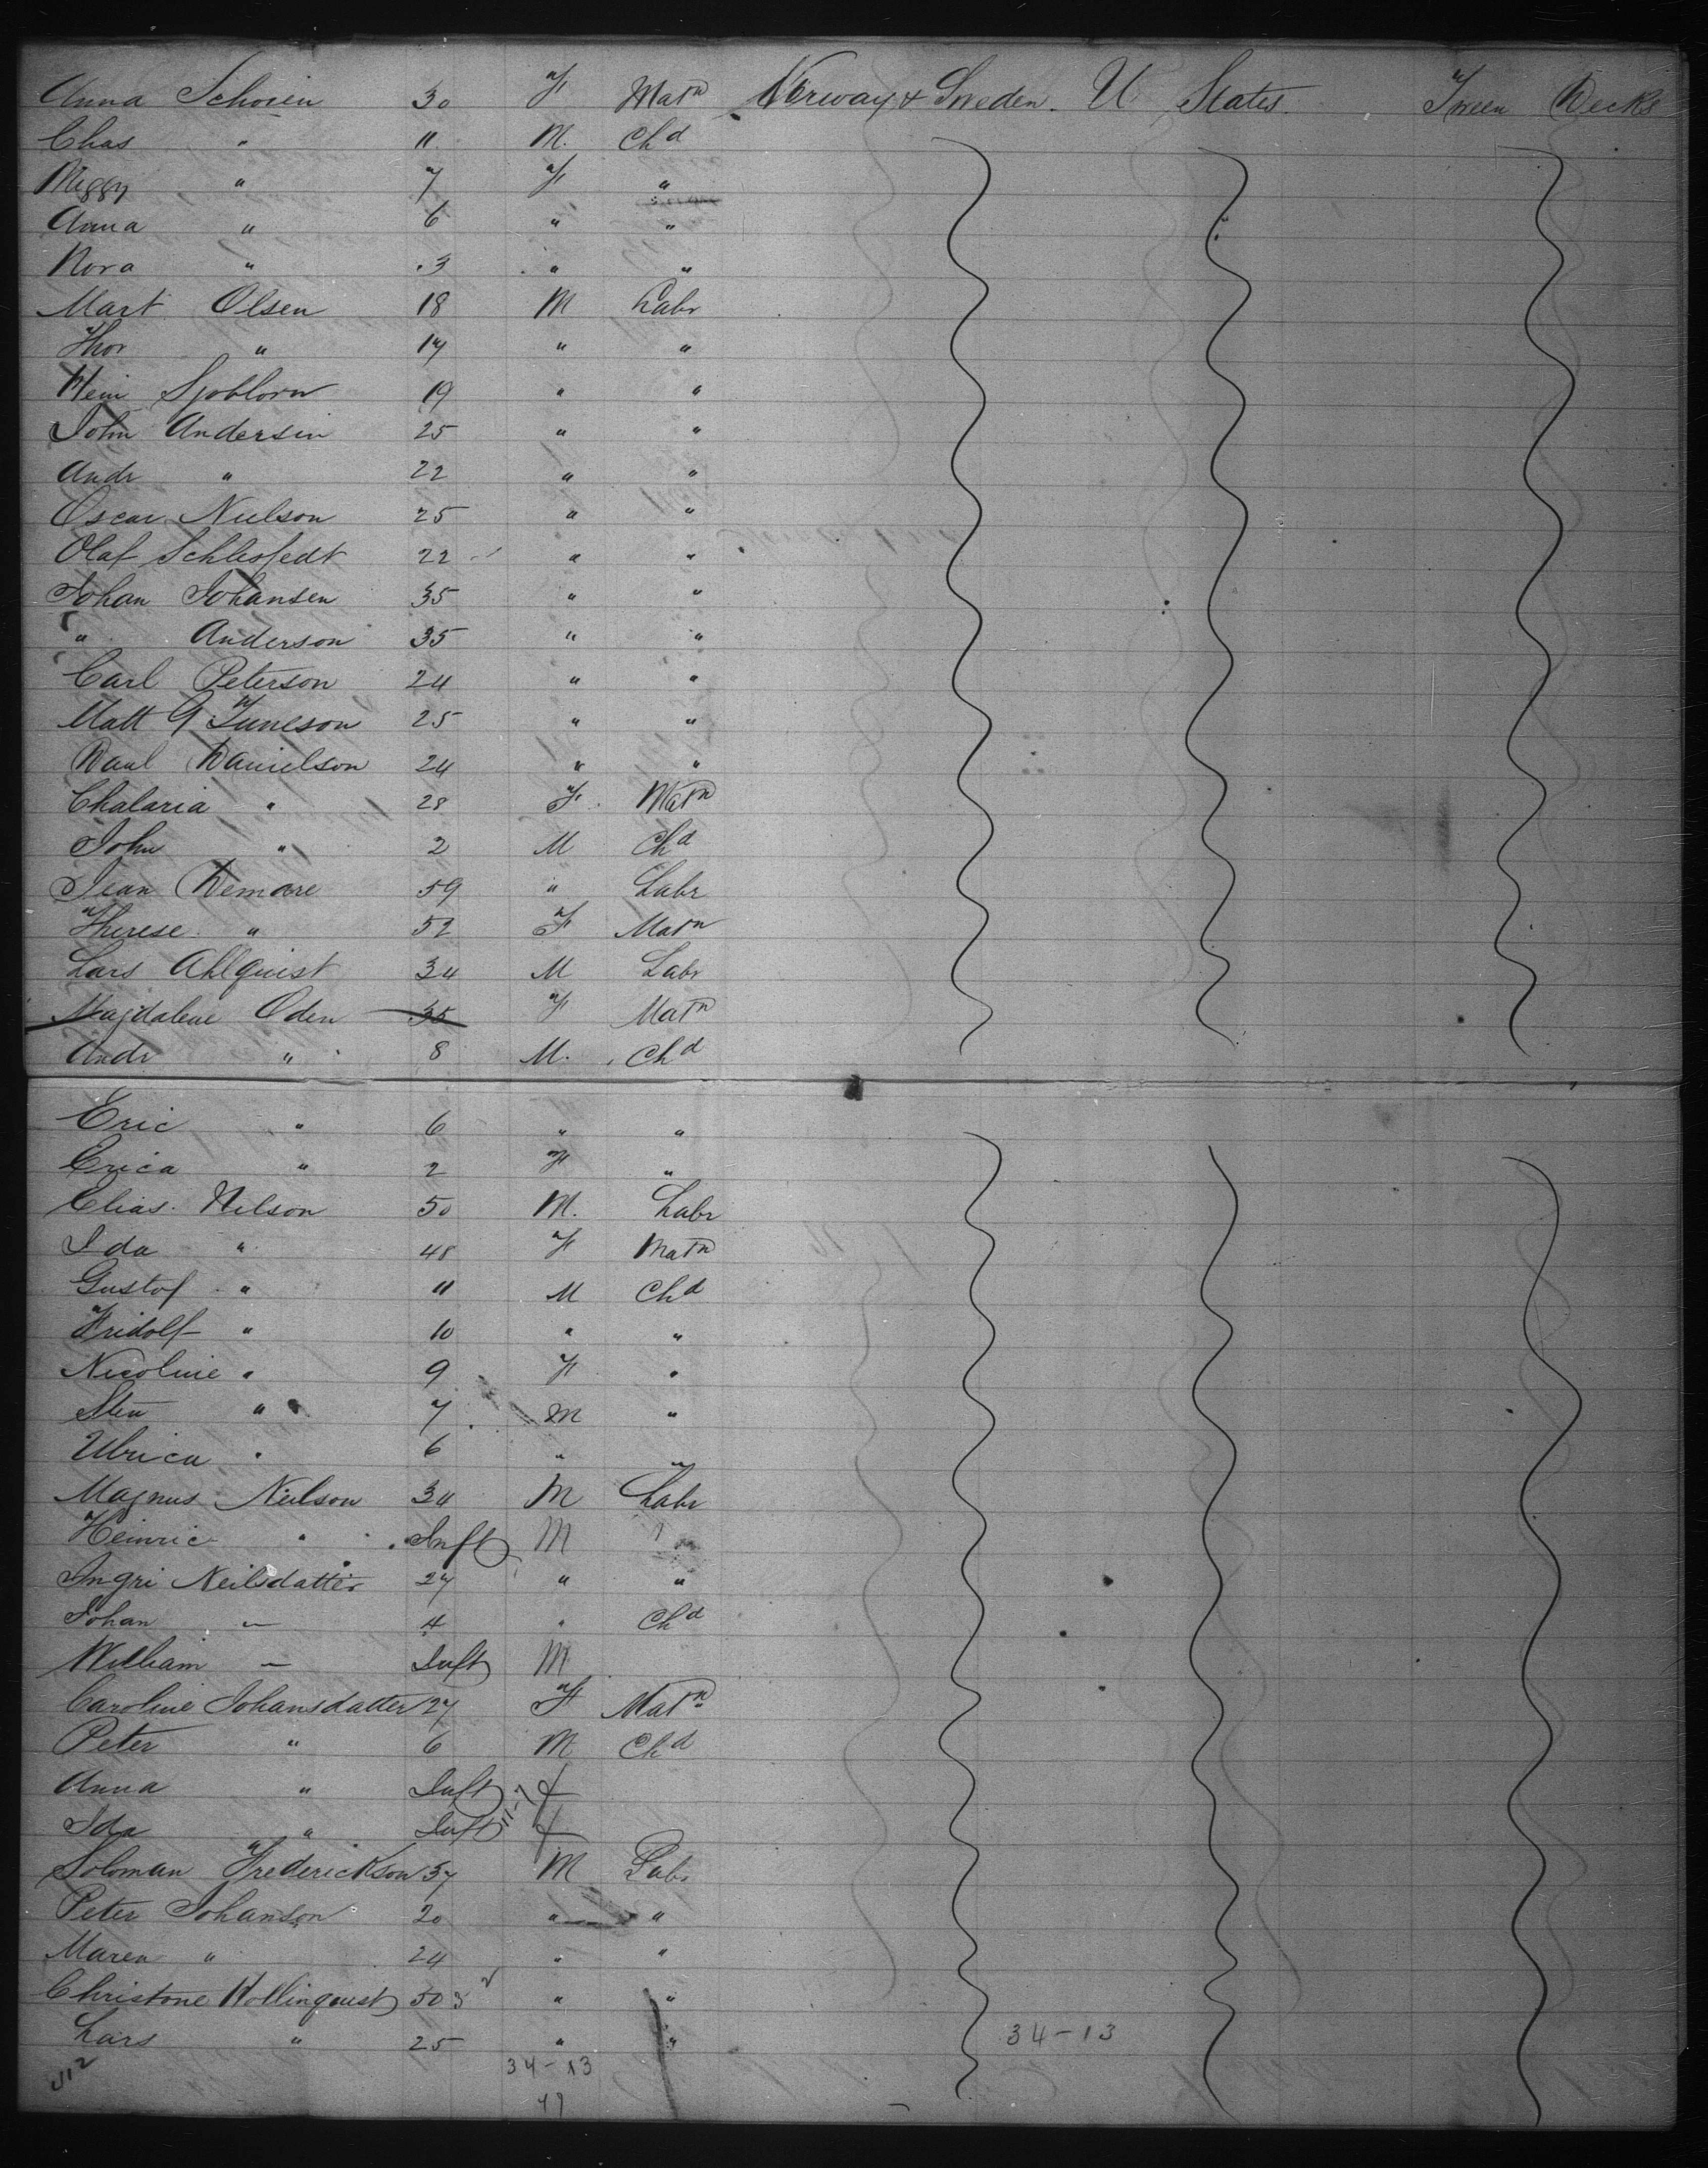 Anna Schoien 30 F Matn Norway & Sweden. U States. Tween Decks
Chas " 11 M. Chd
Miggy " 7 F "
Anna " 6 " "
Nora " 3 " "
Mart Olsen 18 M Labr
Thor " 17 " "
Hein Sjoblom 19 " "
John Andersin 25 " "
Andr " 22 " "
Oscar Nielson 25 " "
Olaf 22 " "
Johan Johansen 35 " "
" Anderson 35 " "
Carl Peterson 24 " "
Matt G 25 " "
Danl Danielson 24 " "
Chalaria " 28 F. Matn
John " 2 M Chd
Jean Demare 59 " Labr
Therese " 52 F Matn
Lars Ahlquist 34 M Labr
Magdalene Oden 35 F Matn
Andr " 8 M. Chd
Eric " 6 " "
Erica " 2 F "
Elias. Nilson 50 M. Labr
Ida " 48 F Matn
Gustof " 11 M Chd
Fridolf " 10 " "
Nicoline " 9 F "
Sten " 7 M "
Ulrica " 6 " "
Magnus Neilson 34 M Labr
Heinric " Inft M
Ingri Neilsdatter 27 " "
Johan — 4 " Chd
William — Inft M
Caroline Johansdatter 27 F Matn
Peter " 6 M Chd
Anna " Inft f
Ida " Inft 11-7 f
Soloman Frederickson 37 M Labr
Peter Johanson 20 " "
Maren " 24 " "
Christone Hollinquist 50 " "
Lars " 25 " " 34-13
34-13
47